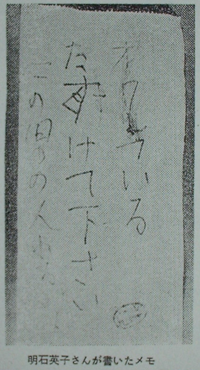 オワれている
たすけて下さい
この男の人わるい
明石英子さんが書いたメモ